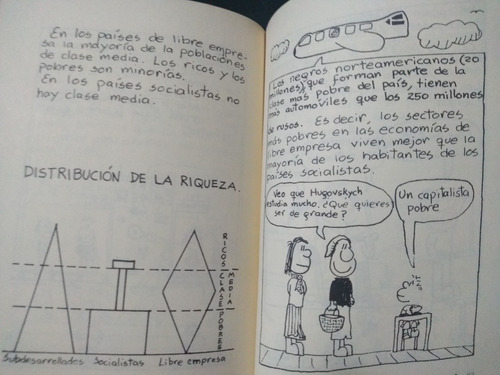 En los países de libre empre-
sa la mayoría de la poblaciónes
de clase media. Los ricos y los
pobres son minorías.
En los países socialistas no
hay clase media.
DISTRIBUCIÓN DE LA RIQUEZA.
RICOS
CLASE MEDIA
POBRES
Subdesarrollados Socialistas Libre empresa
Los negros norteamericanos (20
millones), que forman parte de la
clase más pobre del país, tienen
más automóviles que los 250 millones
de rusos. Es decir, los sectores
más pobres en las economías de
libre empresa viven mejor que la
mayoría de los habitantes de los
países socialistas.
Veo que Hugovskych
estudia mucho. ¿Que quieres
ser de grande?
Un capitalista
pobre